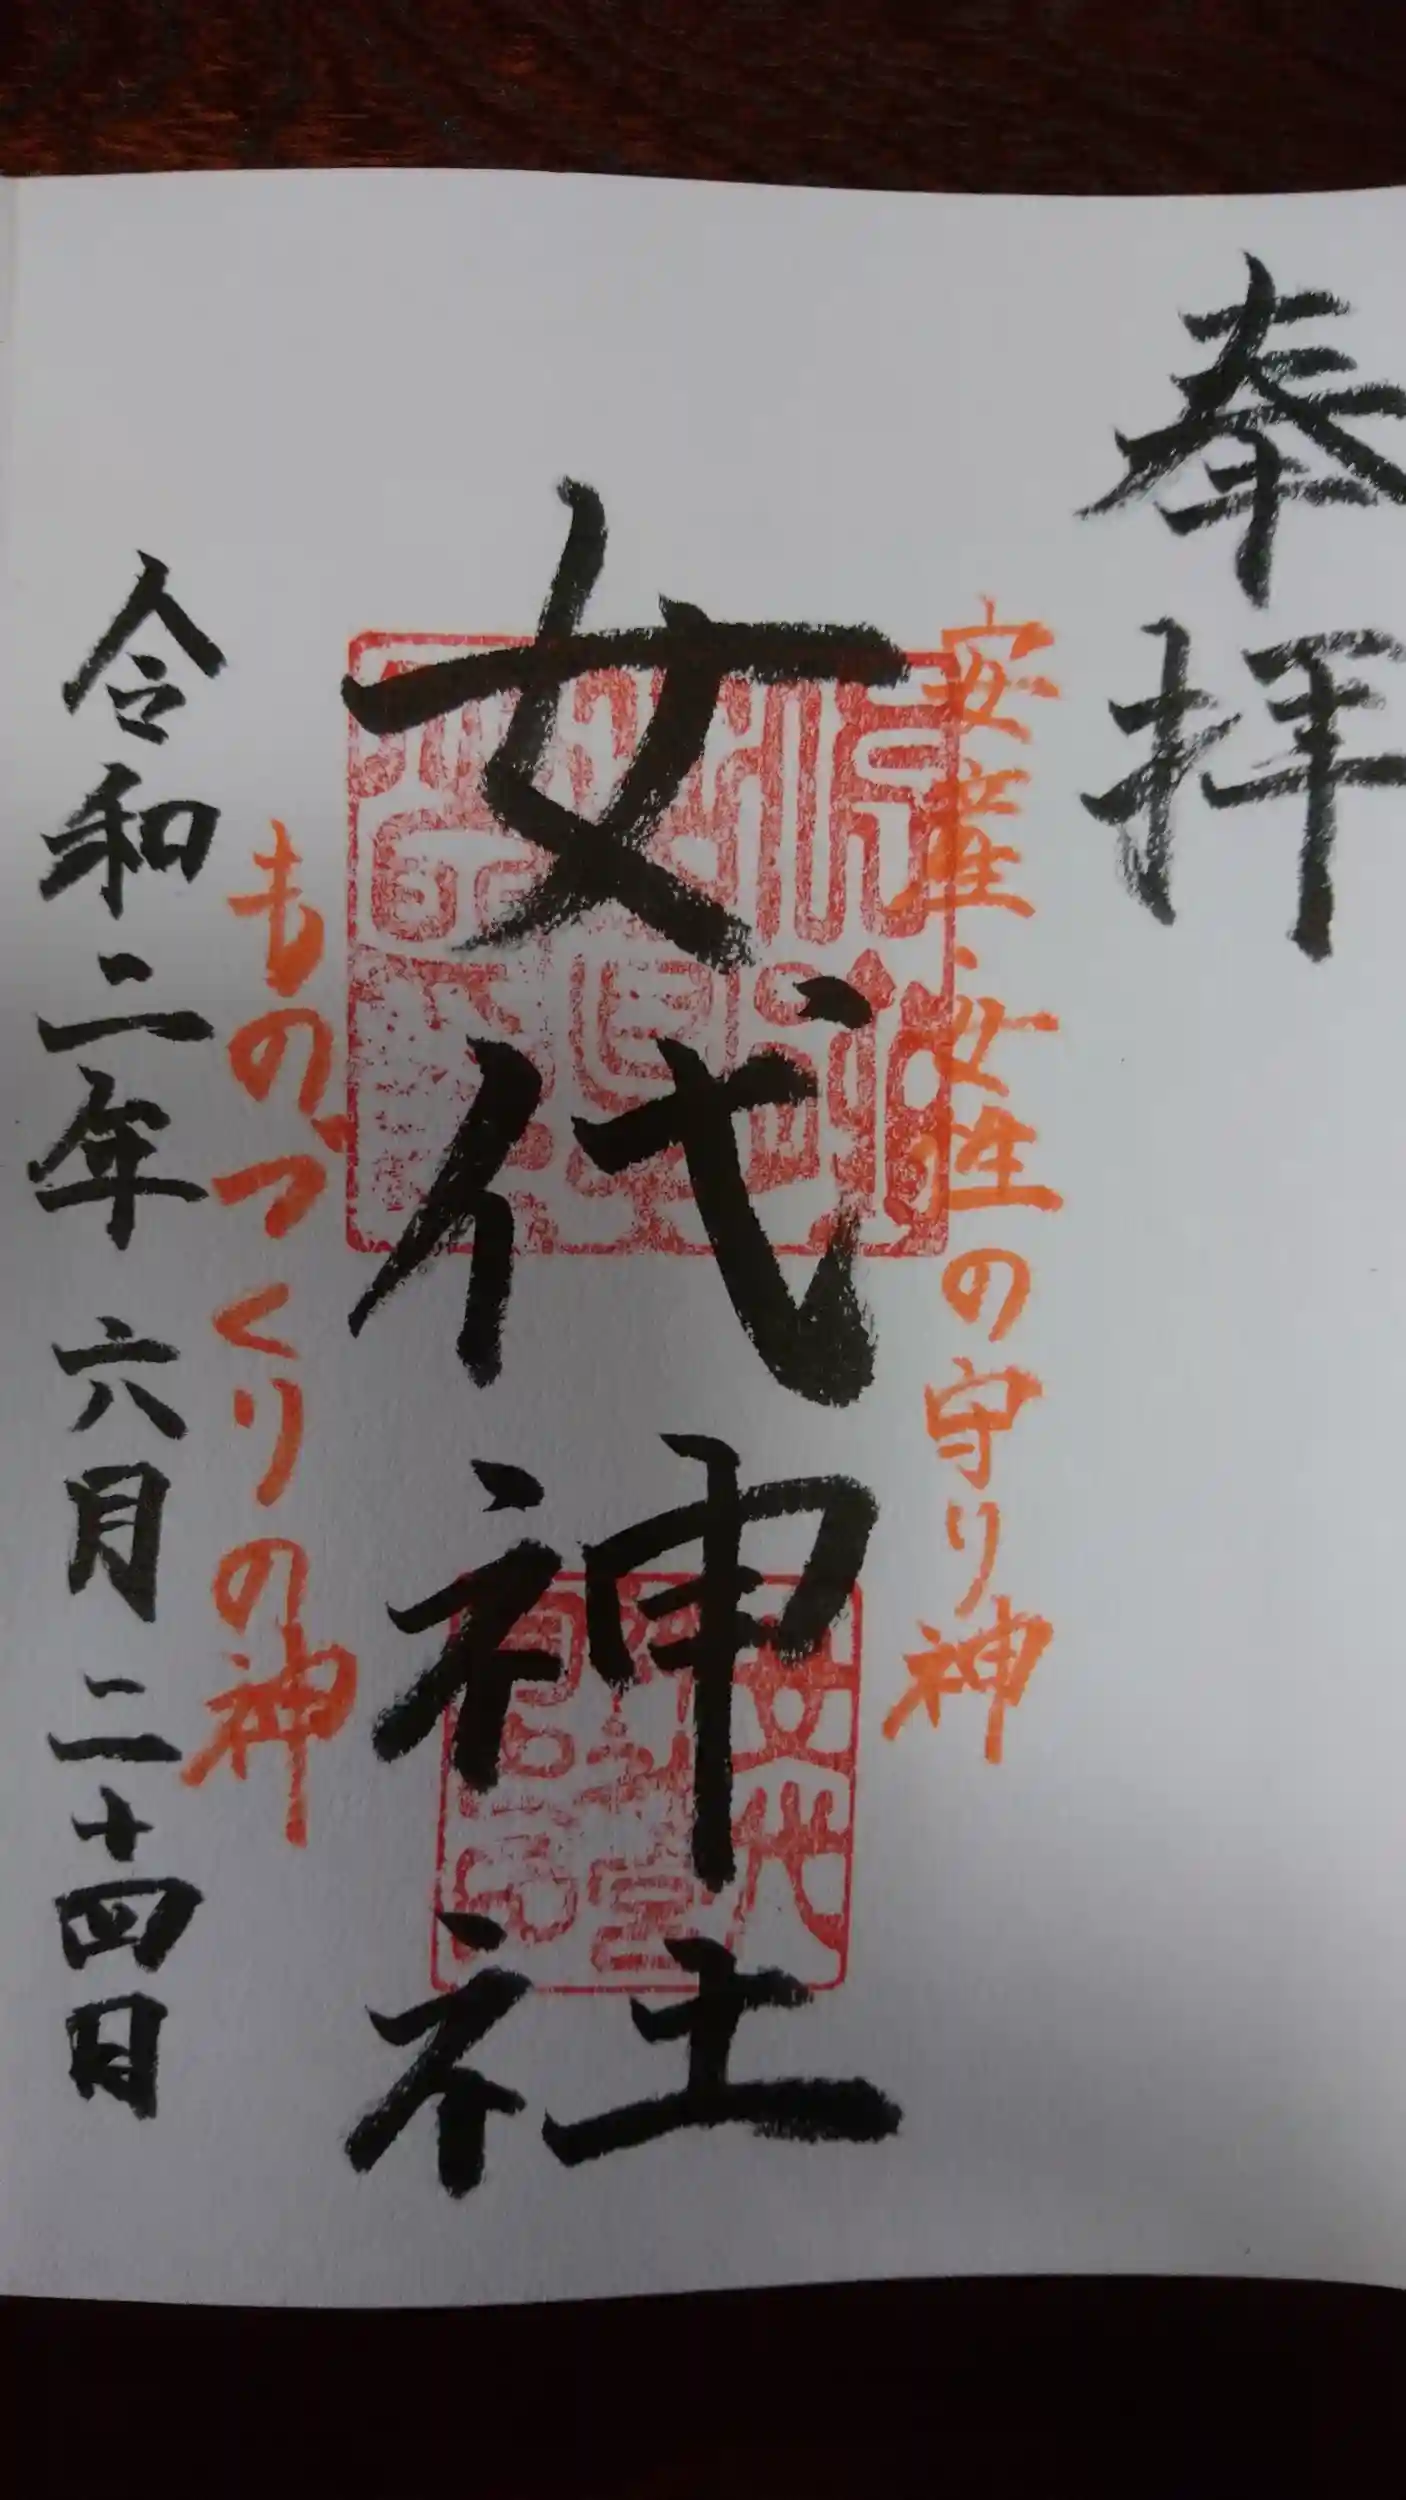 奉拝
安産・女性の守り神
女代神社
ものづくりの神
令和二年六月二十四日